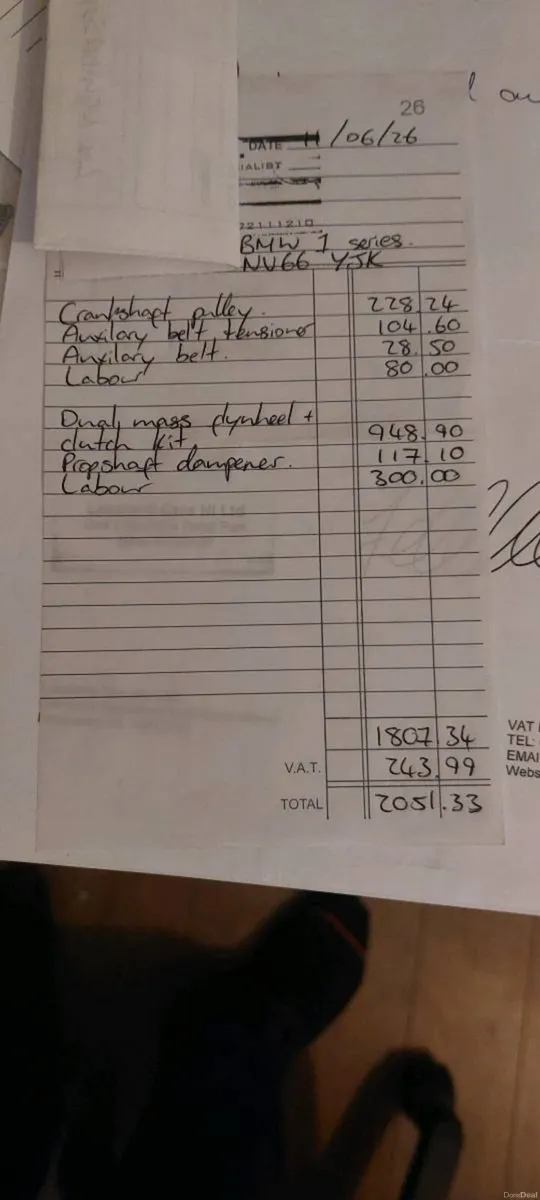 26
DATE 11/06/26
IALIST
22111210
BMW 1 series.
NV66 YJK
Crankshaft pulley. 228.24
Auxilary belt tensioner 104.60
Auxilary belt. 28.50
Labour 80.00
Dual mass flywheel +
clutch kit, 948.90
Propshaft dampener. 117.10
Labour 300.00
1807.34
V.A.T. 243.99
TOTAL 2051.33
VAT
TEL:
EMAI
Webs
DoneDeal